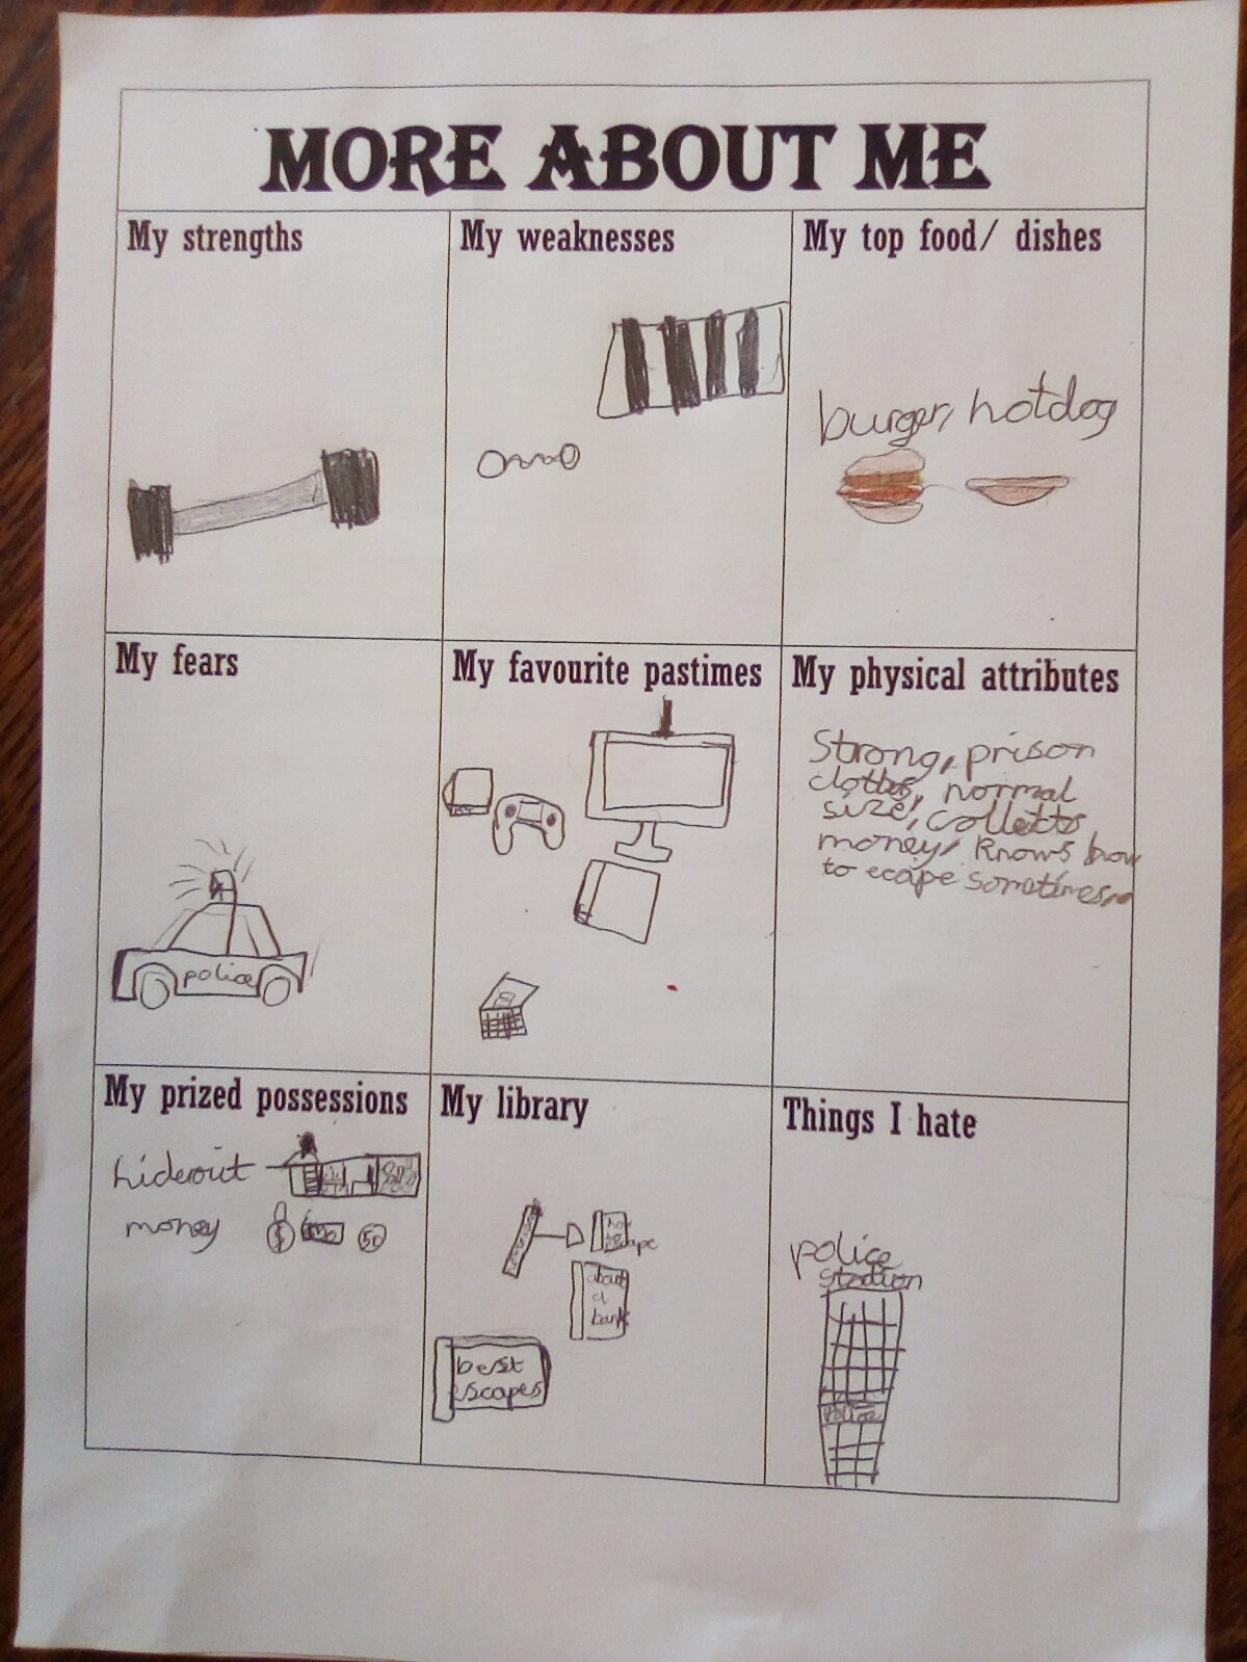 MORE ABOUT ME
My strengths
My weaknesses
My top food/ dishes
burger, hotdog
My fears
police
My favourite pastimes
My physical attributes
Strong, prison
clothes, normal
size, collects
money, knows how
to ecape sometimes
My prized possessions
hideout
money
$
50
My library
how
to
about
a
bank
best
escapes
Things I hate
police
station
Police